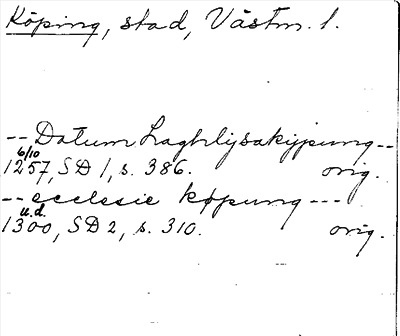 Köping, stad, Västm. l.
-- Datum Laghlysakøpung --
6/10
1257, SD 1, s. 386. orig.
-- ecclesie køpung ---
u.d.
1300, SD 2, s. 310. orig.